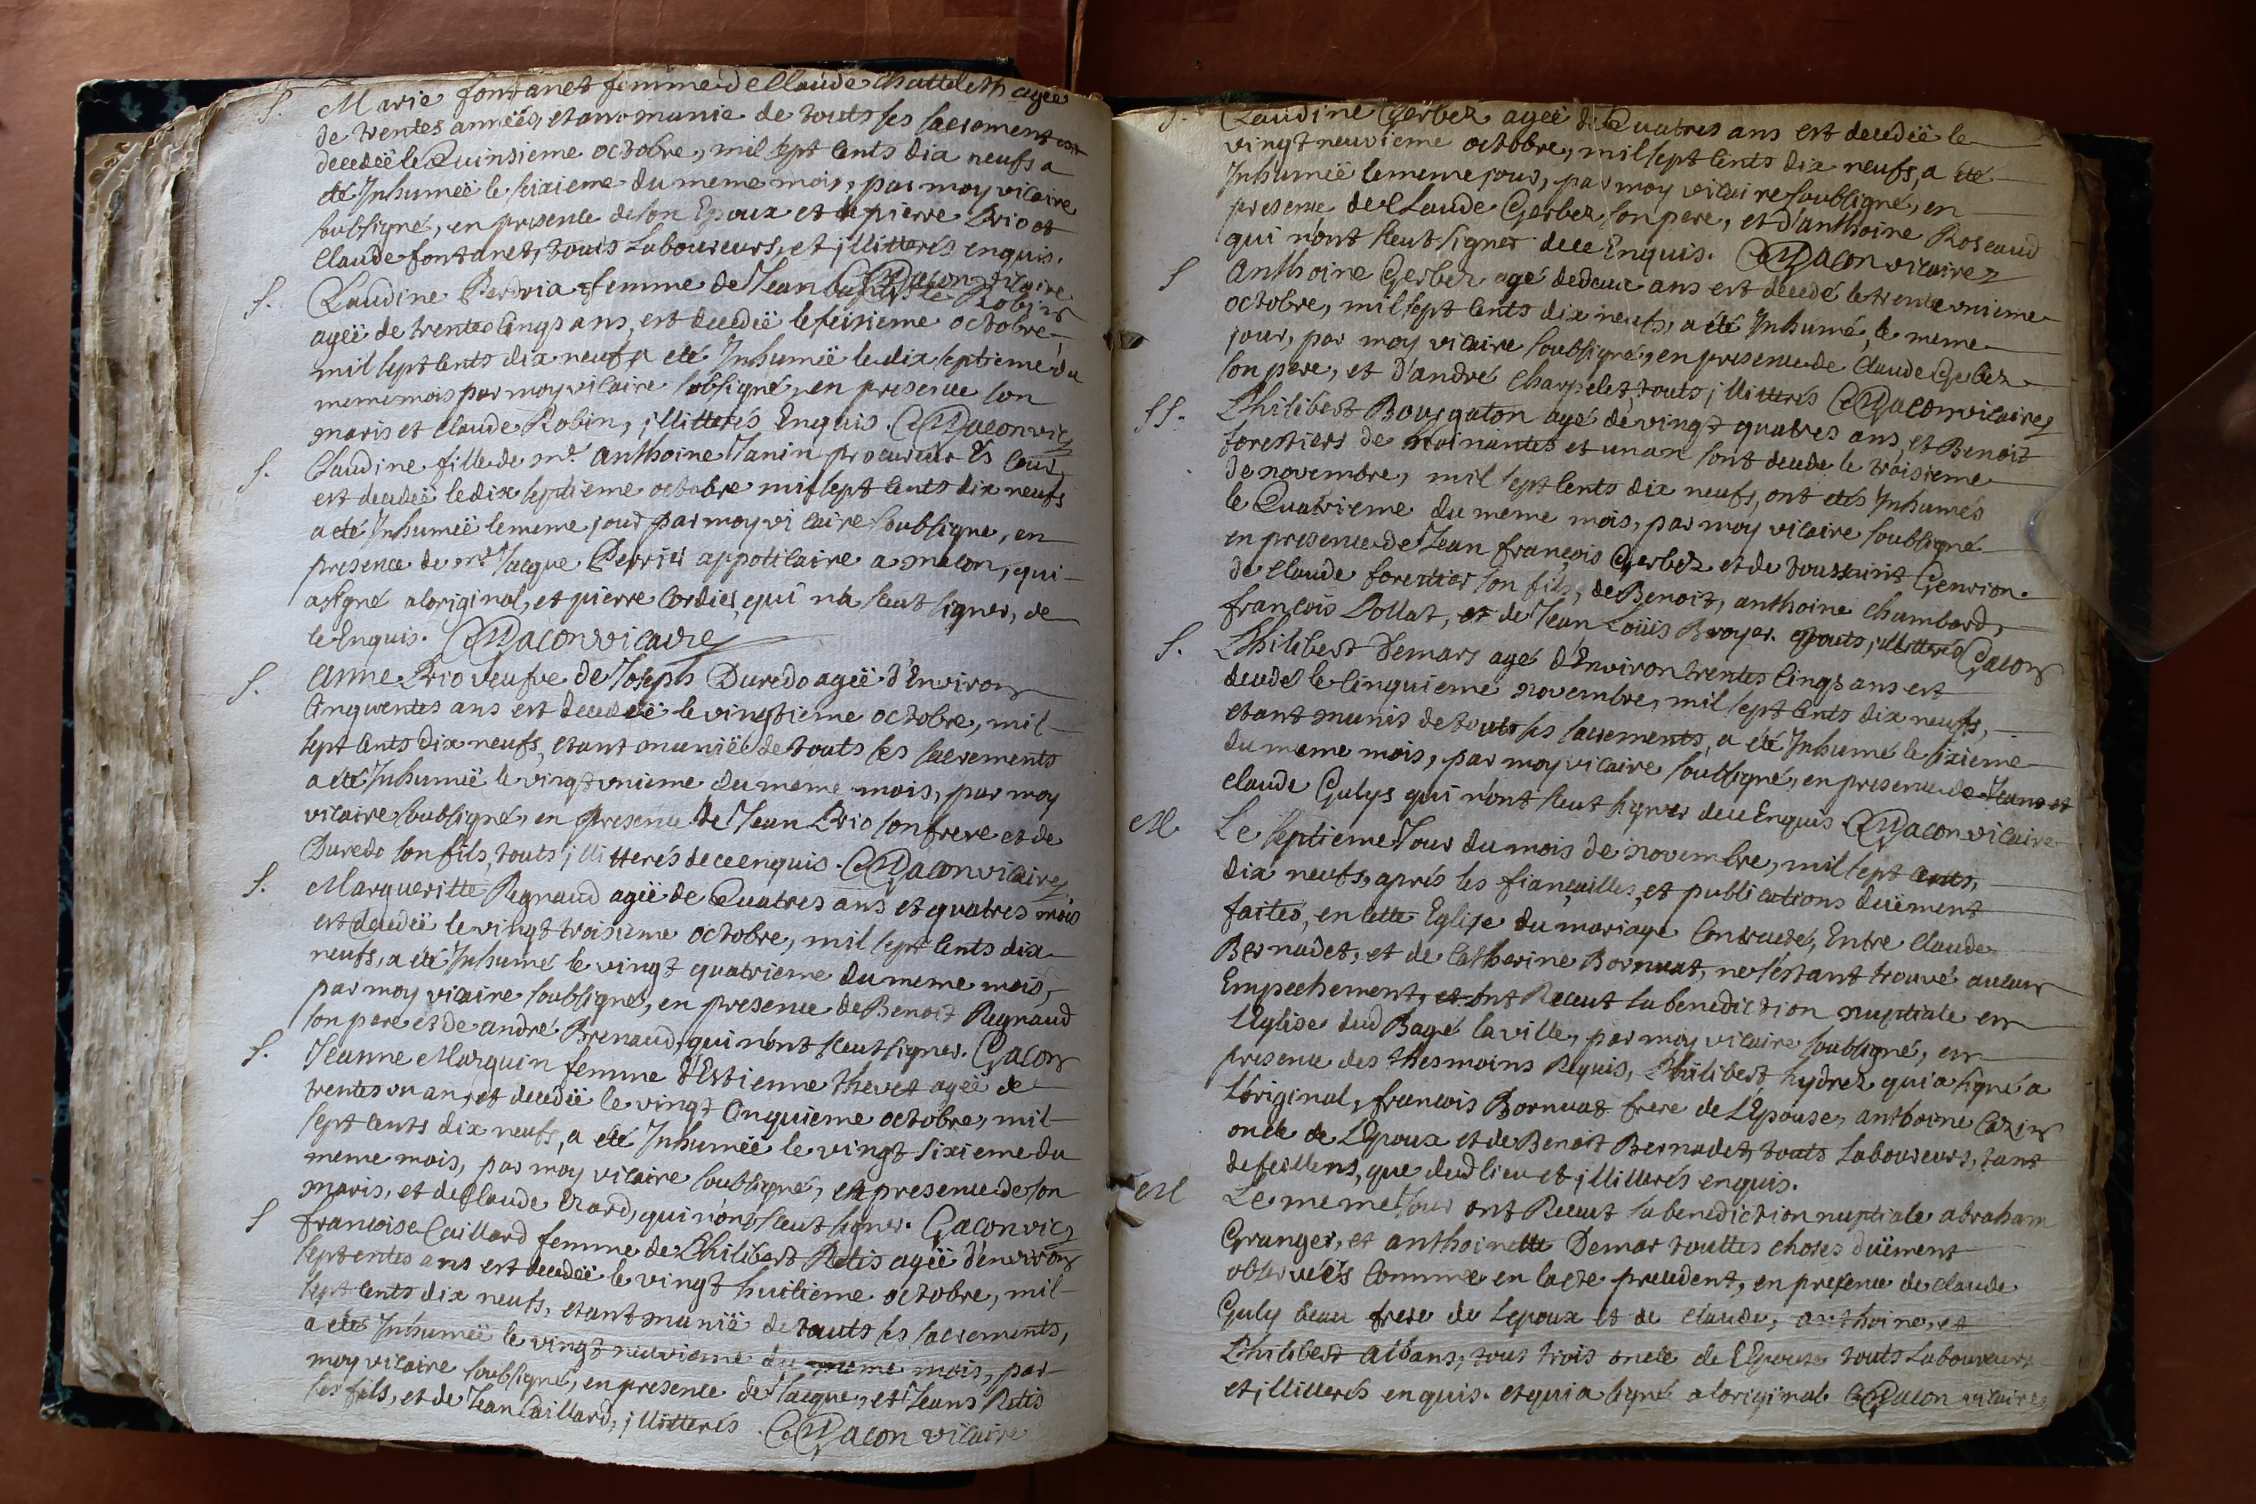 S. Marie fontanet femme de Claude Chattelet agee
de trentes années, etant munie de touts ses sacrement est
decedeë le Quinsieme octobre, mil sept Cents dix neufs a
eté Inhumeë le seixieme du meme mois, par moy vicaire
soubsigné, en presence de son Epoux et de pierre Brio et
Claude fontanet, touts Laboureurs, et jllitterés enquis.
CMacon vicaire
S. Claudine Perdria femme de Jean baptiste Robin
ageë de trentes Cinqs ans, est decedeë le seisieme octobre,
mil sept Cents dix neufs a eté Inhumeë le dix septieme du
meme mois par moy vicaire sobsigné, en presence son
maris et Claude Robin, jllitterés Enquis. CMacon vic
S. Claudine fille de mr anthoine Janin procureur Es Cour
est decedeë le dix septieme octobre mil sept Cents dix neufs
a eté Inhumeë le meme jour par moy vicaire soubsigne, en
presence de mr Jacque Perrier appoticaire a macon, qui
a signé a loriginal, et pierre Cordier, qui na sceut signer, de
ce Enquis. CMacon vicaire
S. Anne Brio veufve de Joseph Duredo ageë d'Environ
Cinquentes ans est decedeë le vingtieme octobre, mil
sept Cents dix neufs, etant munieë de touts ses sacrements
a eté Inhumeë le vingt vnieme du meme mois, par moy
vicaire soubsigné, en presence de Jean Brio son frere et de
Duredo son fils, touts jllitterés de ce enquis. CMacon vicaire
S. Margueritte Regnaud ageë de Quatres ans et quatres mois
est decedeë le vingt troisieme octobre, mil sept Cents dix
neufs, a eté Inhumé le vingt quatrieme du meme mois,
par moy vicaire soubsigné, en presence de Benoit Regnaud
son pere et de andré Brenaud, qui n'ont sceut signer. CMacon
S. Jeanne Marquin femme d'Estienne thevet ageë de
trentes vn an, est decedeë le vingt Cinquieme octobre, mil
sept Cents dix neufs, a eté Inhumeë le vingt sixieme du
meme mois, par moy vicaire soubsigné, en presence de son
maris, et de Claude Erard, qui n'ont sceut signer. CMacon vic
S francoise Caillard femme de Philibert Retis ageë d'environ
septentes ans est decedeë le vingt huitieme octobre, mil
sept Cents dix neufs, etant munië de touts ses sacrements,
a eté Inhumeë le vingt neuvieme du meme mois, par
moy vicaire soubsigné, en presence de Jacque, et Jeans Retis
ses fils, et de Jean Caillard, jllitterés. CMacon vicaire
S. Claudine Gerbez ageë de Quatres ans est decedeë le
vingt neuvieme octobre, mil sept Cents dix neufs, a eté
Inhumeë le meme jour, par moy vicaire soubsigné, en
presence de Claude Gerbez son pere, et d'anthoine Roscaud
qui n'ont sceut signer de ce Enquis. CMacon vicaire
S Anthoine Gerbez agé de deux ans est decedé le trente vnieme
octobre, mil sept Cents dix neufs, a eté Inhumé, le meme
jour, par moy vicaire soubsigné, en presence de Claude Gerbez
son pere, et D'andré Charpelet, touts jllitterés CMacon vicaire
SS. Philibert Bourgaton agé de vingt quatres ans, et Benoit
forestiers de noinantes et un an sont decede le troisieme
de novembre, mil sept Cents dix neufs, ont etés Inhumés
le Quatrieme du meme mois, par moy vicaire soubsigné
en presence de Jean françois Gerbez et de toussaint Genrion.
de Claude forestier son fils, de Benoit, anthoine Chambard,
françois Dollat, et de Jean Loüis Broyer. touts jllitterés CMacon
S. Philibert Demars agé d'Environ trentes Cinqs ans est
decedé le Cinquieme novembre, mil sept Cents dix neufs,
etant munis de touts ses sacrements, a eté Inhumé le sixieme
du meme mois, par moy vicaire soubsigné, en presence de Jeans et
claude Gulys qui n'ont sceut signer de ce Enquis. CMacon vicaire
M. Le septieme Jour du mois de novembre, mil sept Cents,
dix neufs, aprés les fiançailles, et publications duëment
faites, en cette Eglise du mariage Contracté, Entre Claude
Bernadet, et de Catherine Bornuat, ne s'estant trouvé aucun
Empechement, et ont Receut la benediction nuptiale en
L'Eglise dud Bagé la ville, par moy vicaire soubsigné, en
presence des thesmoins Requis, Philibert hydrez qui a signé a
L'original, françois Bornuat frere de L'Epouse, anthoine Cazin
oncle de L'Epoux et de Benoit Bernadet, touts Laboureurs, tant
de feillens, que dud lieu et jllitterés enquis.
M Le meme Jour ont Receut la benediction nuptiale abraham
Granger, et anthoinette Demar touttes choses duëment
observeés Comme en lacte precedent, en presence de claude
Guly beau frere de Lepoux et de claude, anthoine, et
Philibert albans, tous trois oncle de L'Epouse touts Laboureurs
et jllitterés enquis. et qui a signé a loriginal CMacon vicaire